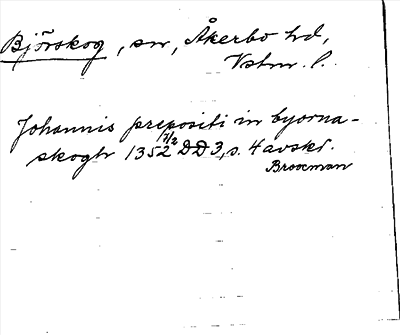 Björskog, sn, Åkerbo hd,
Vstm. l.
Johannis prepositi in byorna-
skogh 1352 7/2 DD3, s. 4 avskr.
Brooman